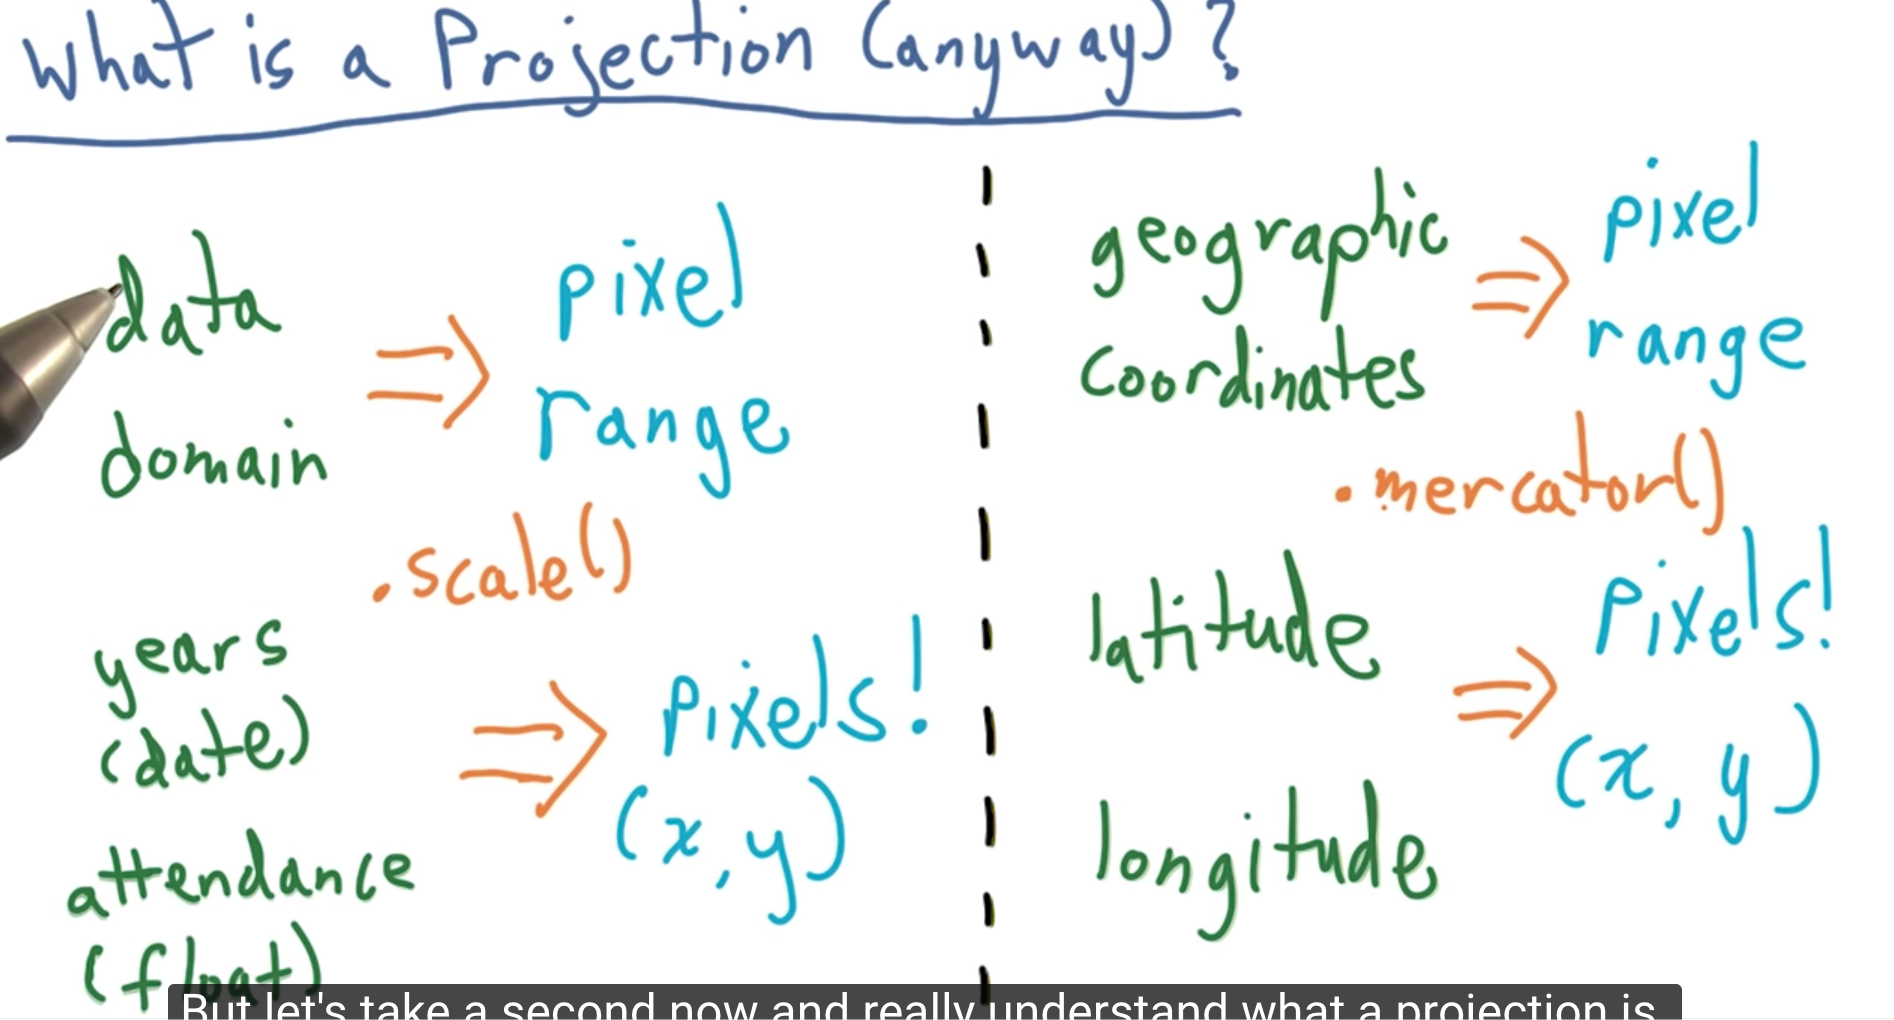 What is a Projection (anyway)?
data
domain
⇒
pixel
range
.scale()
years
(date)
attendance
(float)
⇒
pixels!
(x, y)
geographic
coordinates
⇒
pixel
range
.mercator()
latitude
longitude
⇒
pixels!
(x, y)
But let's take a second now and really understand what a projection is